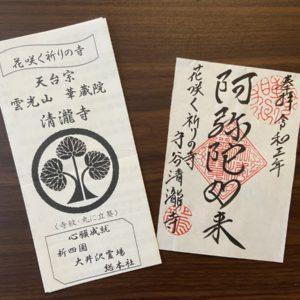 花咲く祈りの寺
天台宗
雲光山 華蔵院
清瀧寺
(寺紋・丸に立葵)
心願成就
新四国
大井沢霊場
総本社
奉拝 令和三年
阿弥陀如来
花咲く祈りの寺
守谷清瀧寺